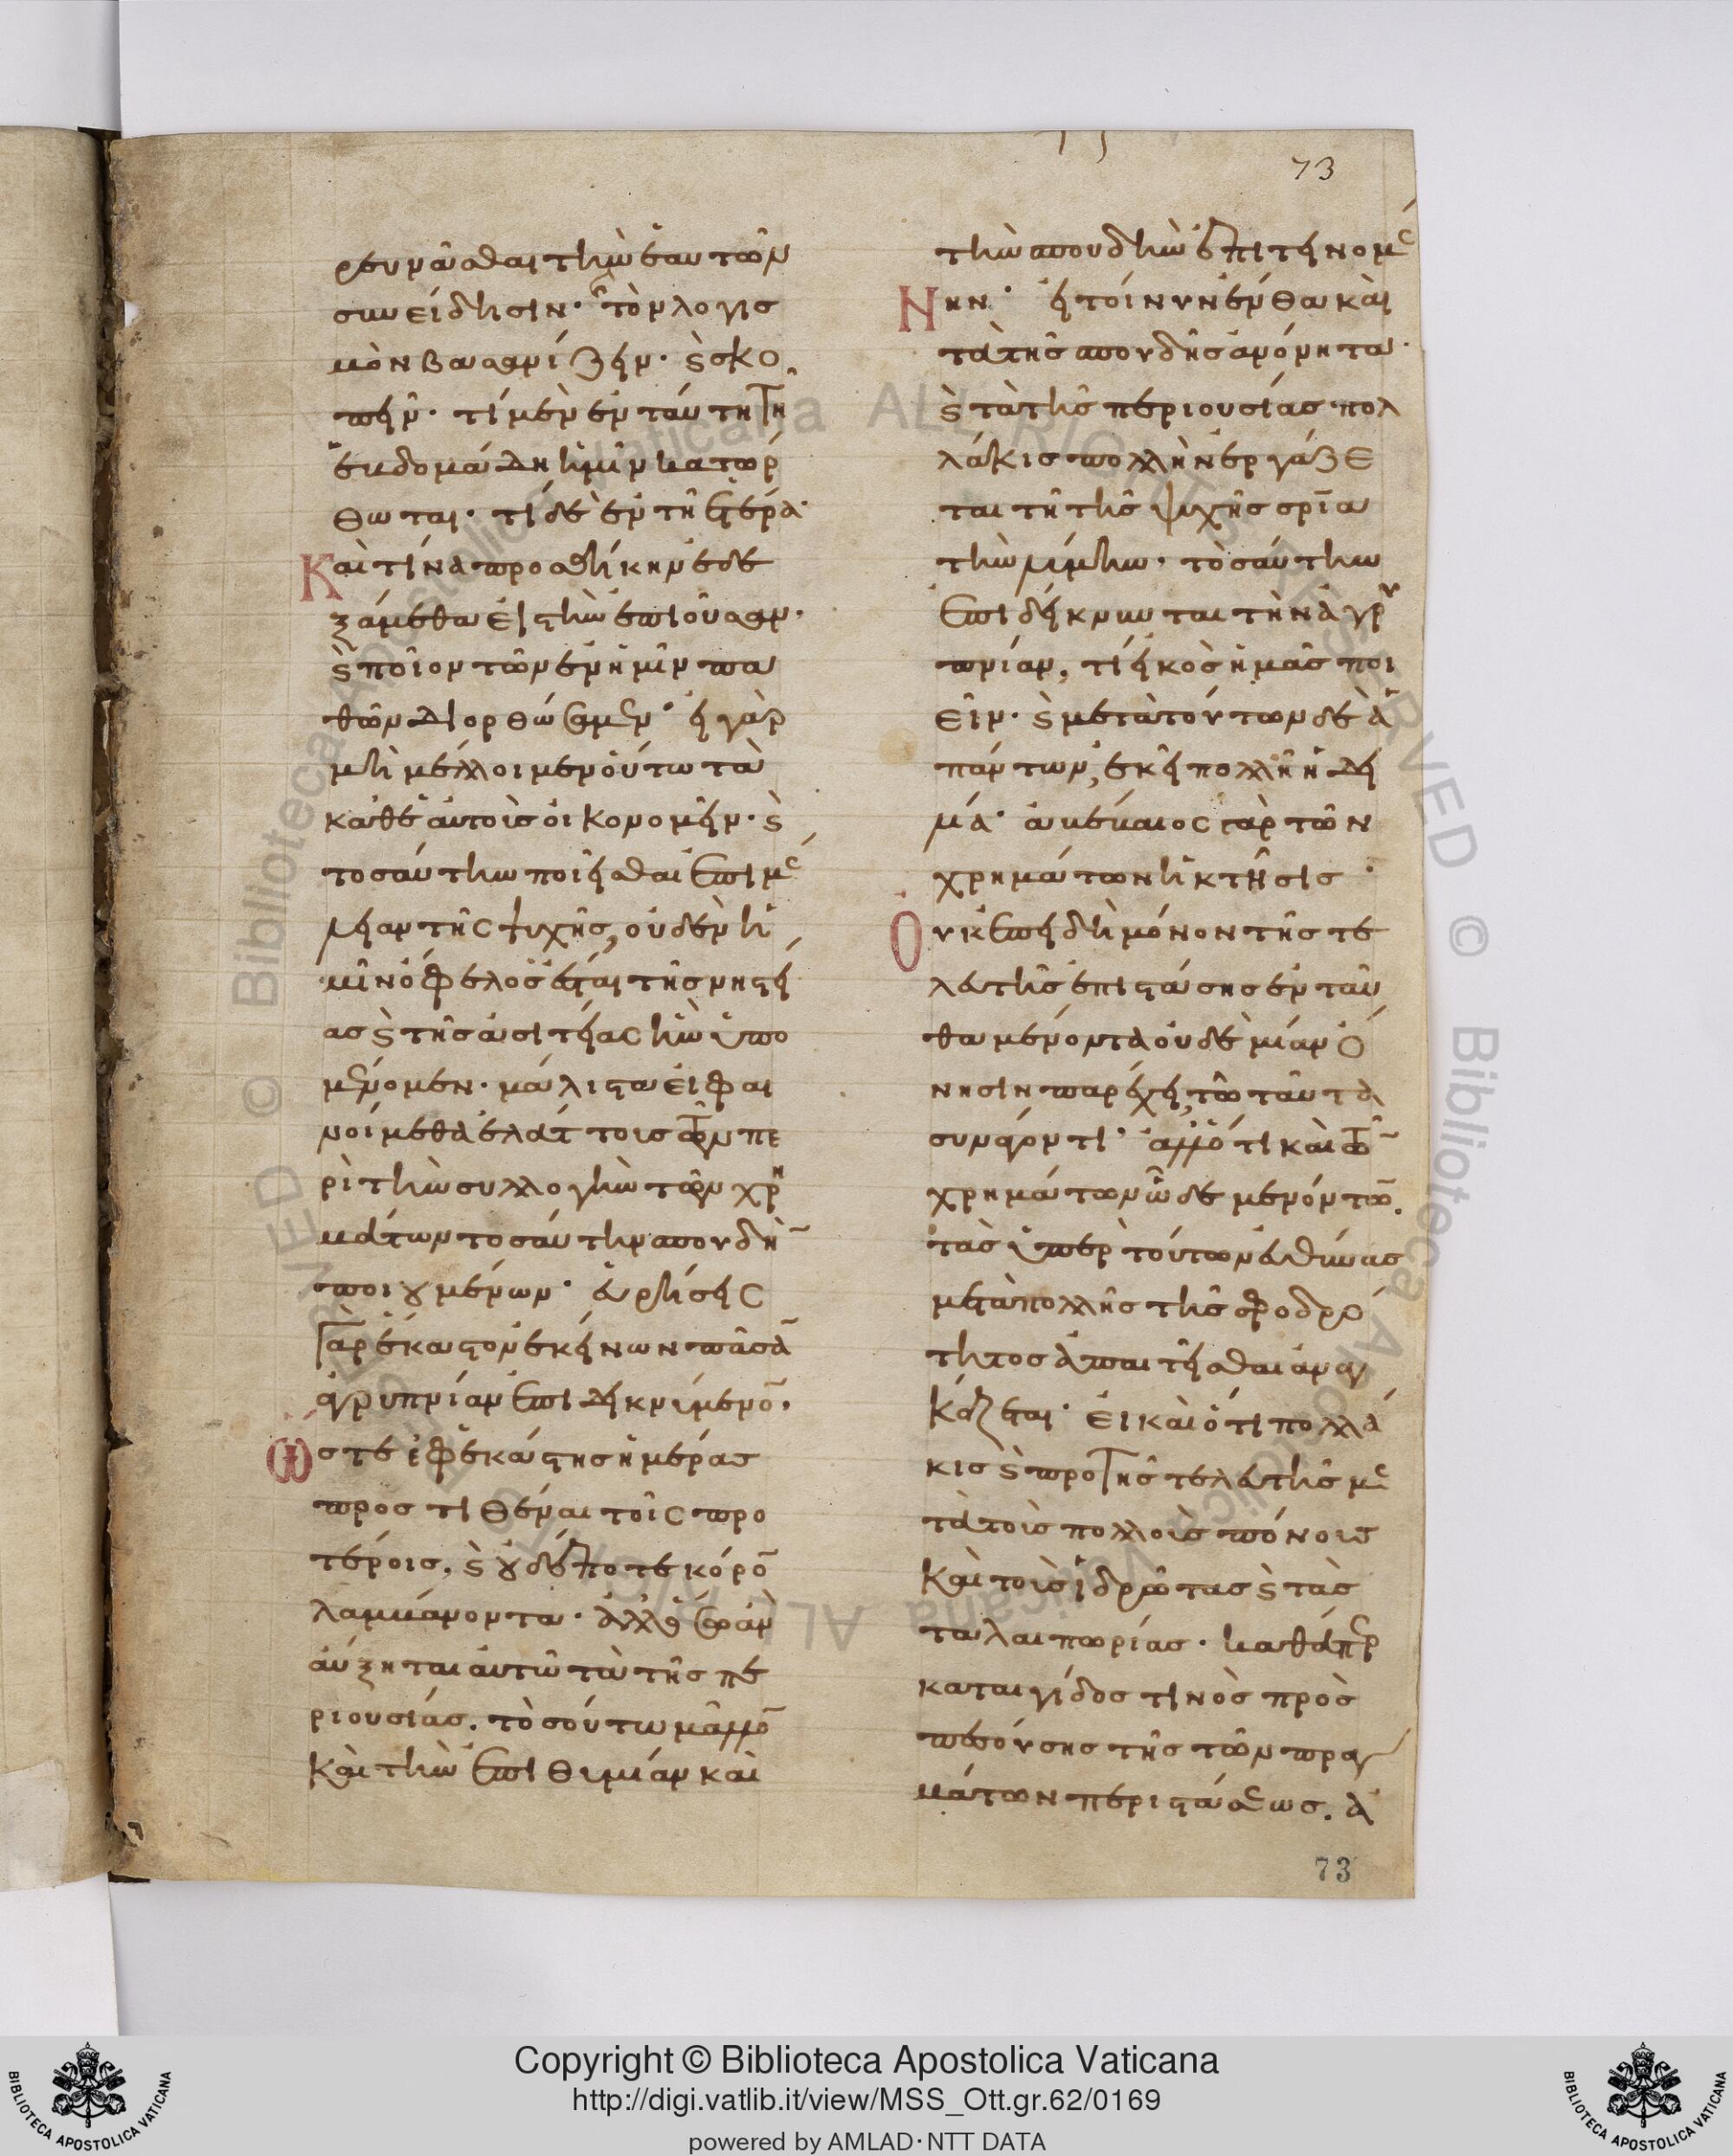 73
ρευνᾶσθαι τὴν ἑαυτῶν
συνείδησιν· καὶ τὸν λογισ
μὸν βασανίζειν· καὶ σκο
πεῖν· τί μὲν ἐν ταύτη τῆ
ἑβδομάδι ἡμῖν κατώρ
θωται· τί δὲ ἐν τῆ ἑτέρα·
Καὶ τίνα προσθήκην ἐδε
ξάμεθα εἰς τὴν ἐπιοῦσαν·
καὶ ποῖον τῶν ἐν ἡμῖν πα
θῶν διορθώσαμεν· εἰ γὰρ
μὴ μέλλοιμεν οὕτω τὰ
καθ' ἑαυτοὺς οἰκονομεῖν· καὶ
τοσαύτην ποιεῖσθαι ἐπιμέ
λειαν τῆς ψυχῆς, οὐδὲν ἡ
μῖν ὄφελος ἔσται τῆς νηστεί
ας καὶ τῆς ἀσιτείας ἣν ὑπο
μένομεν· μάλιστα εἰ φαι
νοίμεθα ἐλάττους τῶν πε
ρὶ τὴν συλλογὴν τῶν χρη
μάτων τοσαύτην σπουδὴν
ποιουμένων· εὑρήσεις
γὰρ ἕκαστον ἐκείνων πᾶσαν
ἀγρυπνίαν ἐπιδεικνύμενον·
Ὥστε ἐφ' ἑκάστης ἡμέρας
προστιθέναι τοῖς προ
τέροις, καὶ οὐδέποτε κόρον
λαμβάνοντα· ἀλλ' ὅσω ἂν
αὔξηται αὐτῶ τὰ τῆς πε
ριουσίας· τοσούτω μᾶλλον
καὶ τὴν ἐπιθυμίαν καὶ
τὴν σπουδὴν ἐπιτεινομέ
Νην· εἰ τοίνυν ἔνθα καὶ
τὰ τῆς σπουδῆς ἀνόνητα·
καὶ τὰ τῆς περιουσίας πολ
λάκις πολλὴν ἐργάζε
ται τῆ τῆς ψυχῆς σωτηρία
τὴν λύμην· τοσαύτην
ἐπιδείκνυνται τὴν ἀγρυ
πνίαν, τί εἰκὸς ἡμᾶς ποι
εῖν· καὶ μετὰ τούτων δὲ ἁ
πάντων, ἐκεῖ πολλὴ ἡ ζη
μία· ἀβέβαιος γὰρ τῶν
χρημάτων ἡ κτῆσις·
Οὐκ ἐπειδὴ μόνον τῆς τε
λευτῆς ἐπιστάσης ἐνταῦ
θα μένοντα οὐδὲ μίαν ὄ
νησιν παρέχει τῶ ταῦτα
συναγόντι· ἀλλ' ὅτι καὶ τῶν
χρημάτων ὧδε μενόντων·
τὰς ὑπὲρ τούτων εὐθύνας
μετὰ πολλῆς τῆς σφοδρό
τητος ἀπαιτεῖσθαι ἀναγ
κάζεται· εἰ καὶ ὅτι πολλά
κις καὶ πρὸ τῆς τελευτῆς με
τὰ τοὺς πολλοὺς πόνους
καὶ τοὺς ἱδρῶτας καὶ τὰς
ταλαιπωρίας· καθάπερ
καταιγίδος τινὸς προσ
πεσούσης τῆς τῶν πραγ
μάτων περιστάσεως· ἀ
73
Copyright © Biblioteca Apostolica Vaticana
http://digi.vatlib.it/view/MSS_Ott.gr.62/0169
powered by AMLAD·NTT DATA